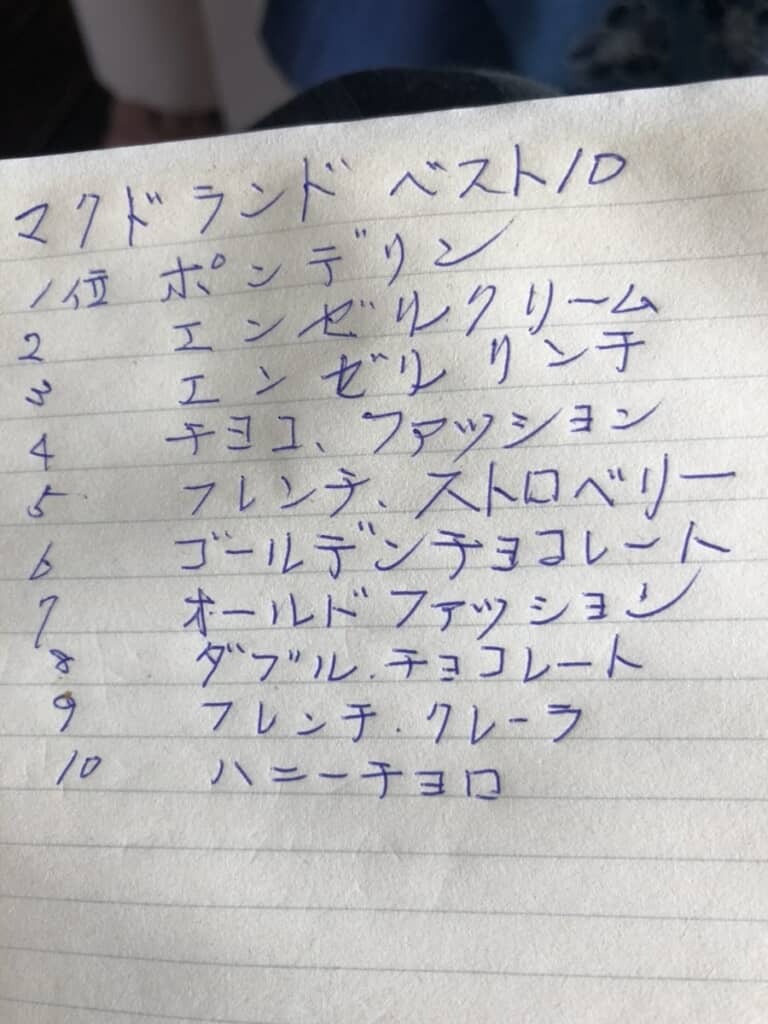 マクドランド ベスト10
1位 ポンデリン
2 エンゼルクリーム
3 エンゼル リンチ
4 チョコ、ファッション
5 フレンチ、ストロベリー
6 ゴールデンチョコレート
7 オールドファッション
8 ダブル.チョコレート
9 フレンチ.クレーラ
10 ハニーチョロ